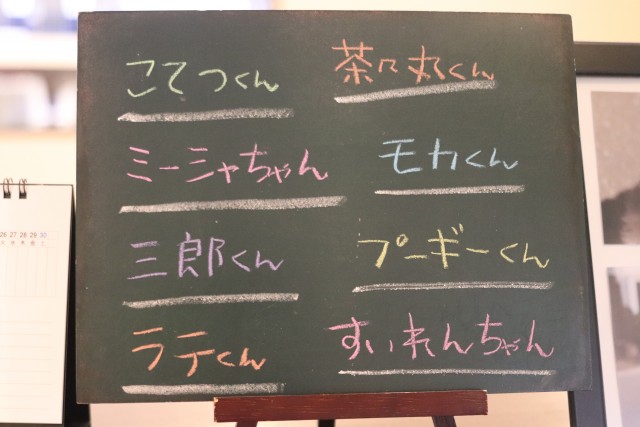 こてつくん
茶々丸くん
ミーシャちゃん
モカくん
三郎くん
プーギーくん
ラテくん
すいれんちゃん
26 27 28 29 30